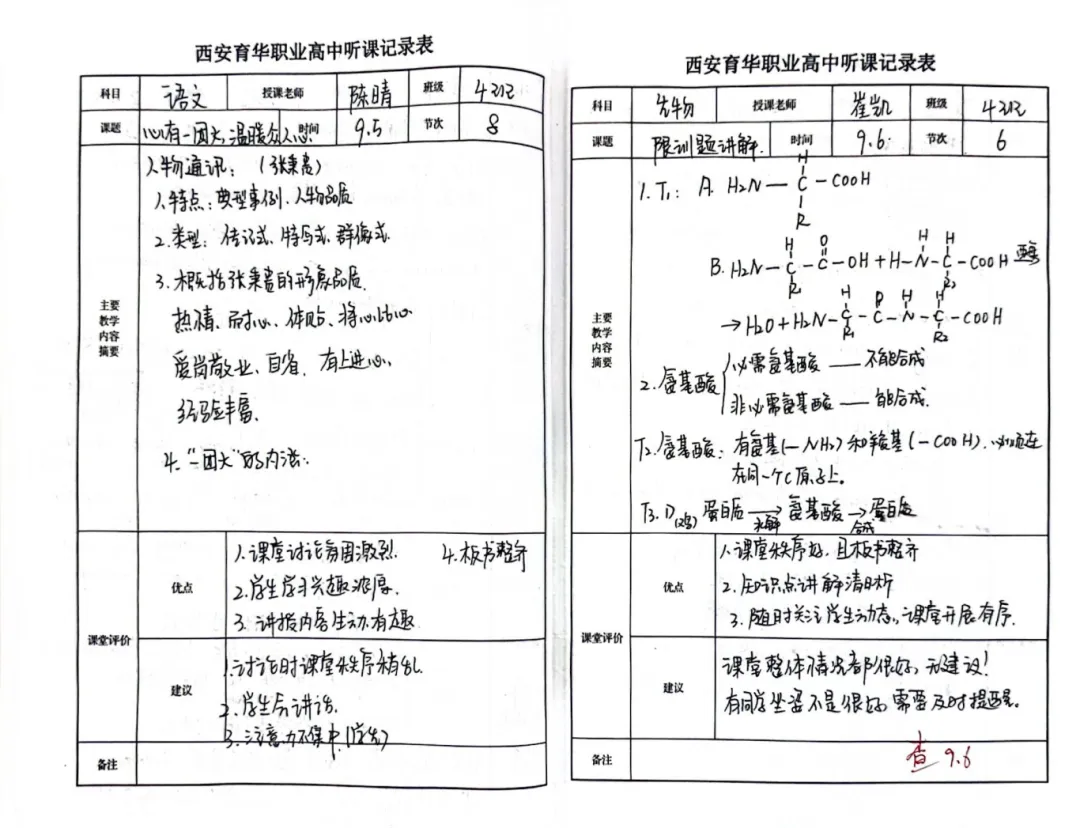 西安育华职业高中听课记录表
科目 语文 授课老师 陈晴 班级 4班
课题 心有一团火,温暖众人心 时间 9.5 节次 8
主要教学内容摘要
人物通讯:(张秉贵)
1.特点:典型事例、人物品质
2.类型:传记式、特写式、群像式.
3.概括张秉贵的形象品质.
热情、耐心、体贴、将心比心
爱岗敬业、自省、有上进心、
经验丰富.
4.“一团火”的
课堂评价
优点
1.课堂讨论氛围激烈.
4.板书整齐
2.学生学习兴趣浓厚.
3.讲授内容生动有趣
建议
1.讨论时课堂秩序稍乱.
2.学生会讲话.
3.注意力不集中.(学生)
备注
西安育华职业高中听课记录表
科目 生物 授课老师 崔凯 班级 4班
课题 限训题讲解. 时间 9.6. 节次 6
主要教学内容摘要
H
1.T1: A. H2N — C — COOH
R
H O H H
B. H2N — C — C — OH + H — N — C — COOH 酶
R1 R2
H O H H
→ H2O + H2N — C — C — N — C — COOH
R1 R2
必需氨基酸 —— 不能合成
2.氨基酸
非必需氨基酸 —— 能合成.
T2.氨基酸:有氨基(—NH2)和羧基(—COOH).必须连
在同一个C原子上.
T3.D 蛋白质 → 氨基酸 → 蛋白质
水解 合成
课堂评价
优点
1.课堂秩序好,且板书整齐
2.知识点讲解清晰
3.随时关注学生动态,课堂开展有序.
建议
课堂整体情况都很好,无建议!
有同学坐姿不是很好,需要及时提醒.
备注
查 9.6